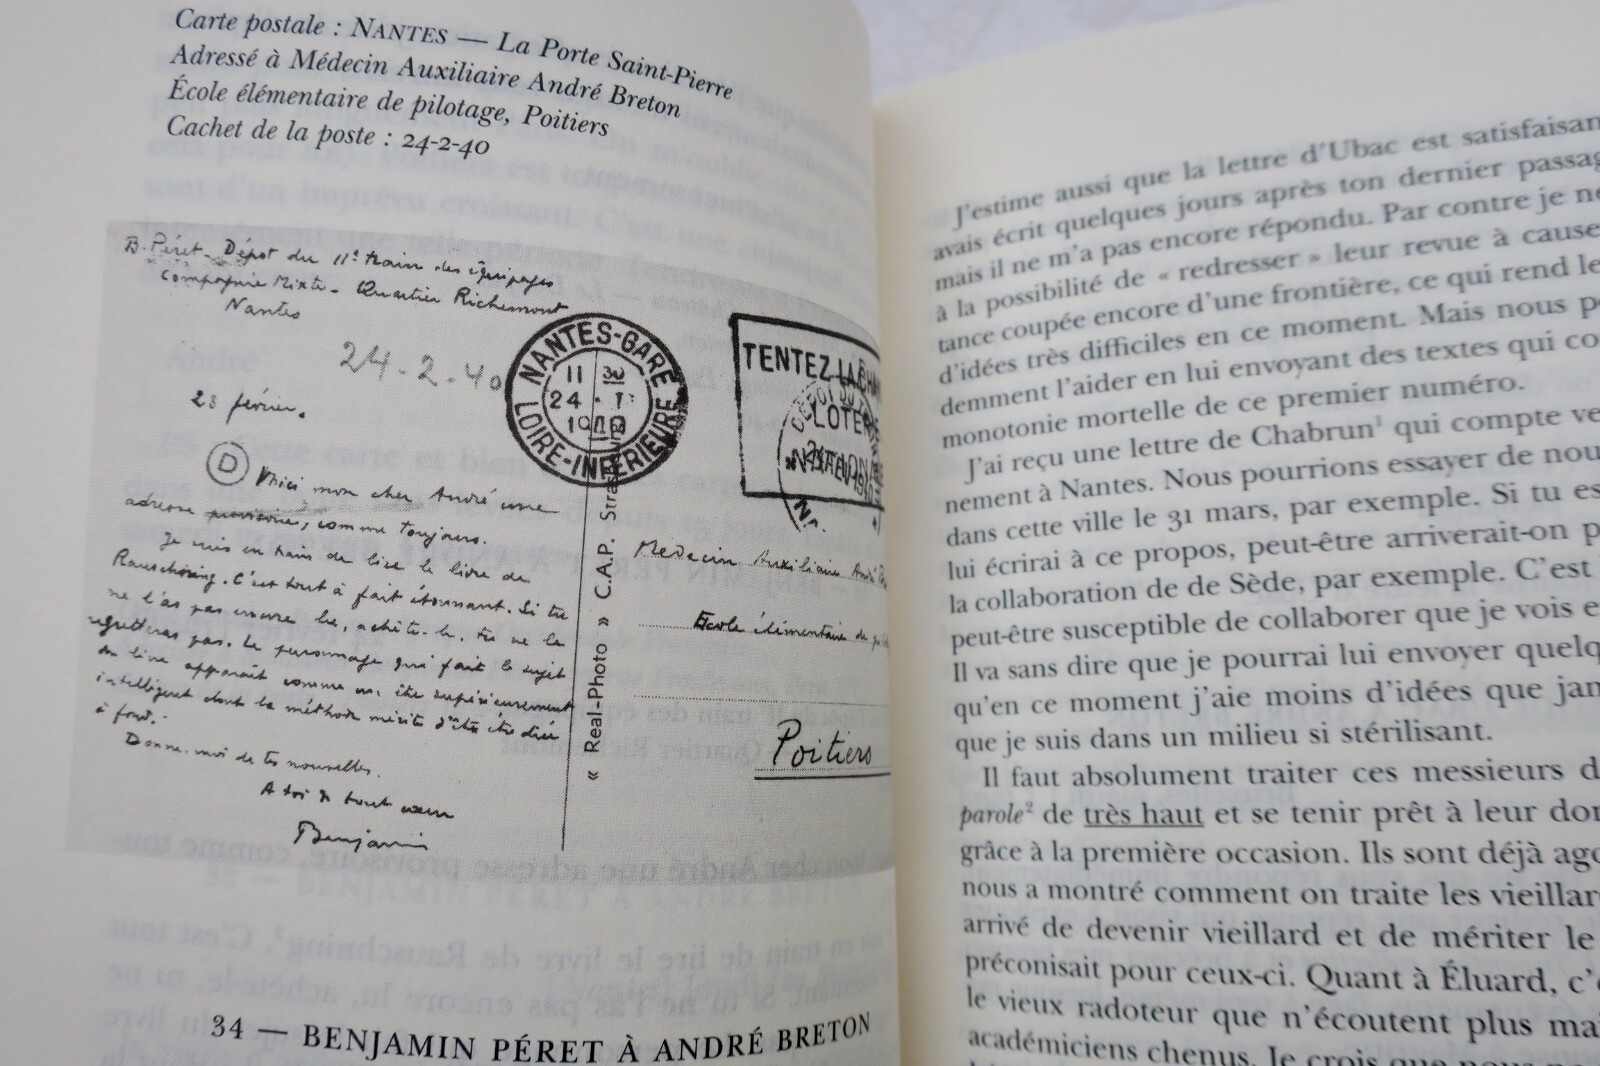 Carte postale : NANTES — La Porte Saint-Pierre
Adressé à Médecin Auxiliaire André Breton
École élémentaire de pilotage, Poitiers
Cachet de la poste : 24-2-40
B. Péret - Dépot du 11e train des équipages
Compagnie Mixte - Quartier Richemont
Nantes
24-2-40
NANTES-GARE
11 30
24 - II
LOIRE-INFÉRIEURE
TENTEZ LA CHAN
LOTERIE
23 février.
D
Voici mon cher André une
adresse provisoire, comme toujours.
Je suis en train de lire le livre de
Rauschning. C'est tout à fait étonnant. Si tu
ne l'as pas encore lu, achète-le, tu ne le
regretteras pas. Le personnage qui fait le sujet
du livre apparaît comme un être supérieurement
intelligent dont la méthode mérite d'être étudiée
à fond.
Donne-moi de tes nouvelles.
A toi de tout cœur
Benjamin
« Real-Photo » C.A.P. Strasbourg
Medecin Auxiliaire André
Ecole élimentaire de
Poitiers
34 — BENJAMIN PÉRET À ANDRÉ BRETON
J'estime aussi que la lettre d'Ubac est satisfaisan
avais écrit quelques jours après ton dernier passag
mais il ne m'a pas encore répondu. Par contre je ne
à la possibilité de « redresser » leur revue à cause
tance coupée encore d'une frontière, ce qui rend le
d'idées très difficiles en ce moment. Mais nous p
demment l'aider en lui envoyant des textes qui co
monotonie mortelle de ce premier numéro.
J'ai reçu une lettre de Chabrun¹ qui compte ve
nement à Nantes. Nous pourrions essayer de nou
dans cette ville le 31 mars, par exemple. Si tu es
lui écrirai à ce propos, peut-être arriverait-on p
la collaboration de de Sède, par exemple. C'est
peut-être susceptible de collaborer que je vois e
Il va sans dire que je pourrai lui envoyer quelq
qu'en ce moment j'aie moins d'idées que jam
que je suis dans un milieu si stérilisant.
Il faut absolument traiter ces messieurs d
parole² de très haut et se tenir prêt à leur don
grâce à la première occasion. Ils sont déjà ago
nous a montré comment on traite les vieillar
arrivé de devenir vieillard et de mériter le
préconisait pour ceux-ci. Quant à Éluard, c'
le vieux radoteur que n'écoutent plus mai
académiciens chenus. Je crois que nous